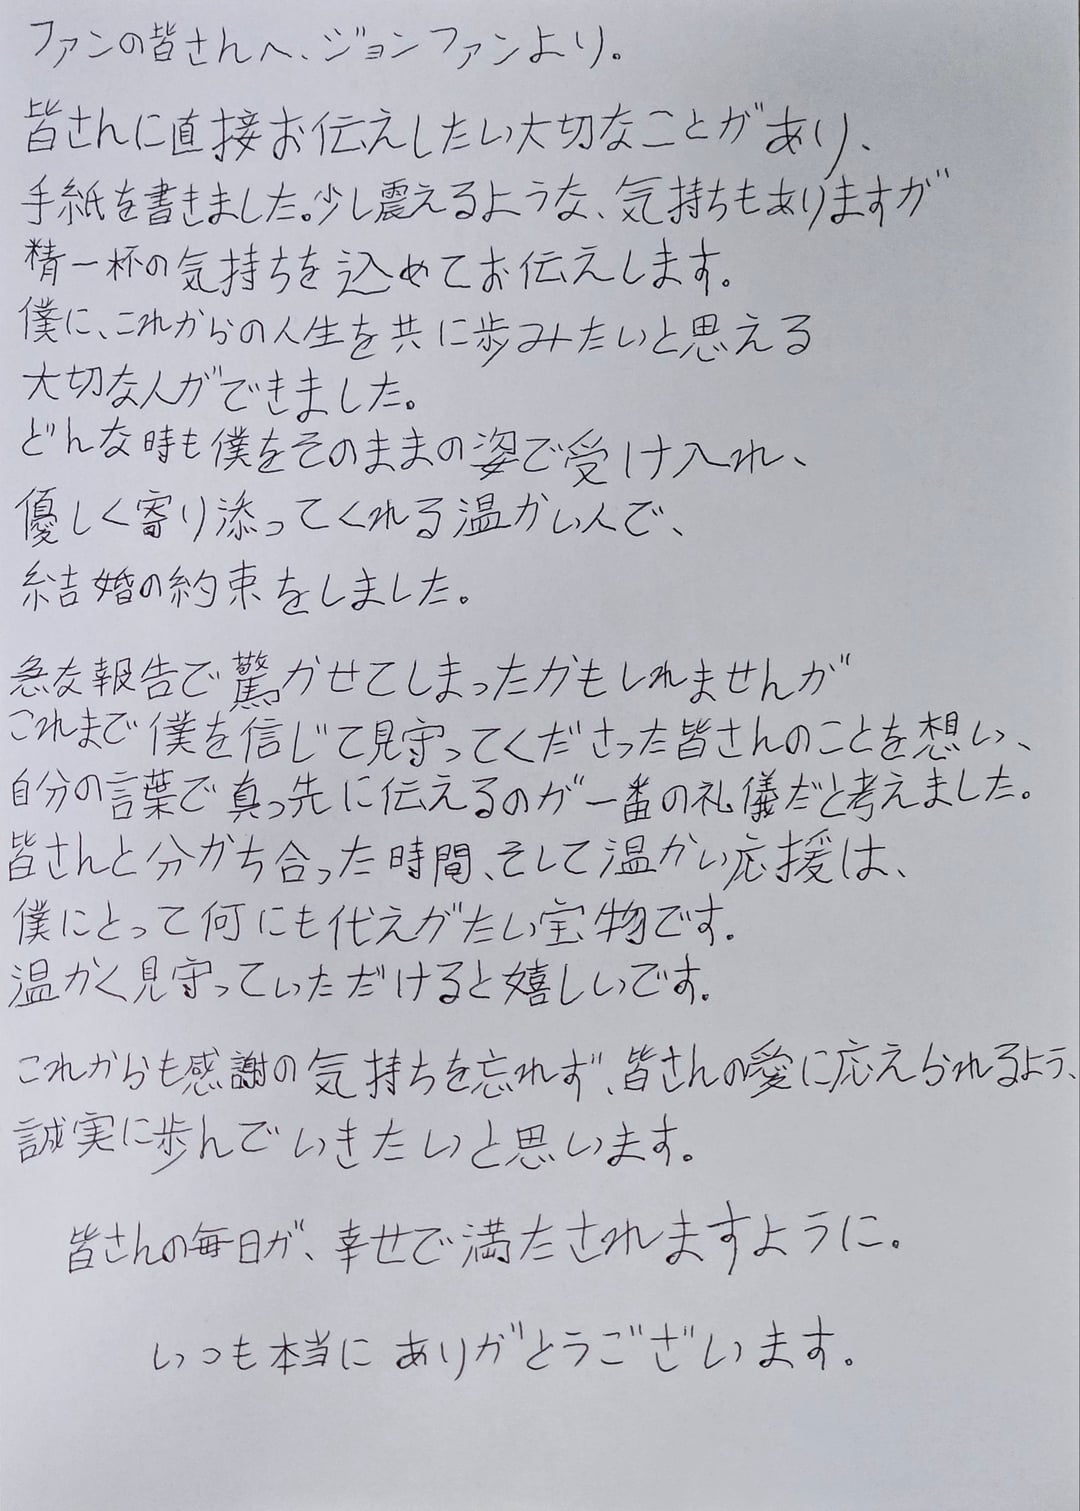 ファンの皆さんへ、ジョンファンより。
皆さんに直接お伝えしたい大切なことがあり、
手紙を書きました。少し震えるような、気持ちもありますが
精一杯の気持ちを込めてお伝えします。
僕に、これからの人生を共に歩みたいと思える
大切な人ができました。
どんな時も僕をそのままの姿で受け入れ、
優しく寄り添ってくれる温かい人で、
結婚の約束をしました。
急な報告で驚かせてしまったかもしれませんが
これまで僕を信じて見守ってくださった皆さんのことを想い、
自分の言葉で真っ先に伝えるのが一番の礼儀だと考えました。
皆さんと分かち合った時間、そして温かい応援は、
僕にとって何にも代えがたい宝物です。
温かく見守っていただけると嬉しいです。
これからも感謝の気持ちを忘れず、皆さんの愛に応えられるよう、
誠実に歩んでいきたいと思います。
皆さんの毎日が、幸せで満たされますように。
いつも本当にありがとうございます。